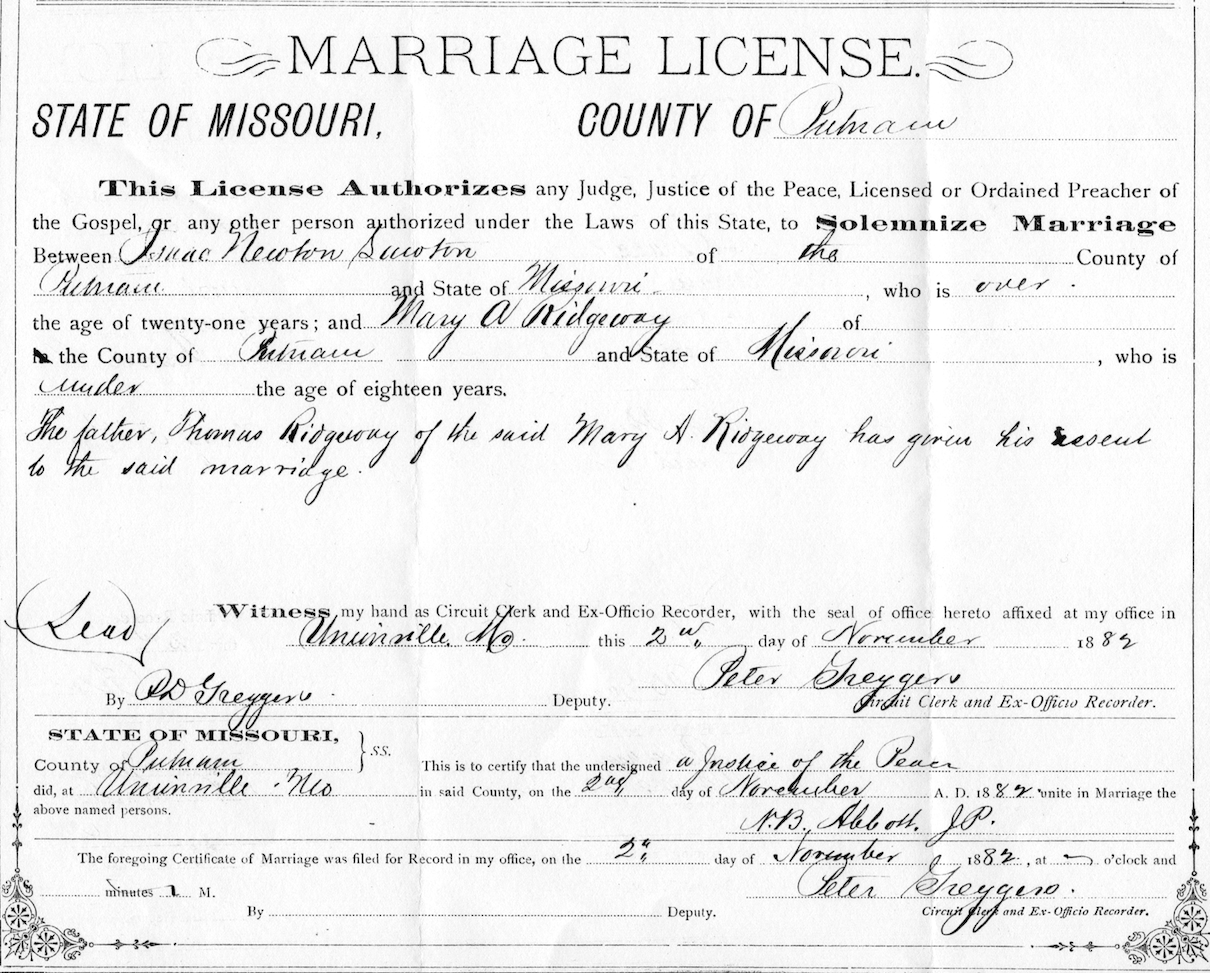 MARRIAGE LICENSE.
STATE OF MISSOURI, COUNTY OF Putnam
This License Authorizes any Judge, Justice of the Peace, Licensed or Ordained Preacher of
the Gospel, or any other person authorized under the Laws of this State, to Solemnize Marriage
Between Isaac Newton of the County of
Putnam and State of Missouri , who is over
the age of twenty-one years; and Mary A Ridgeway of
the County of Putnam and State of Missouri , who is
under the age of eighteen years.
The father, Thomas Ridgeway of the said Mary A. Ridgeway has given his assent
to the said marriage.
Witness my hand as Circuit Clerk and Ex-Officio Recorder, with the seal of office hereto affixed at my office in
Unionville Mo. this 2nd day of November 1882
Peter
By Deputy. Circuit Clerk and Ex-Officio Recorder.
STATE OF MISSOURI,
County of Putnam } SS. This is to certify that the undersigned a Justice of the Peace
did, at Unionville Mo in said County, on the 2nd day of November A. D. 1882 unite in Marriage the
above named persons.
N.B. Abbott. J.P.
The foregoing Certificate of Marriage was filed for Record in my office, on the 2" day of November 1882, at o'clock and
minutes M. Peter
By Deputy. Circuit Clerk and Ex-Officio Recorder.